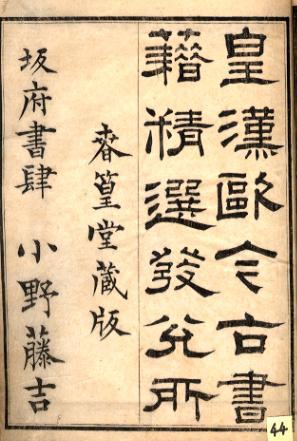 皇漢歐今古書
籍精選發兌所
春篁堂蔵版
坂府書肆 小野藤吉
44